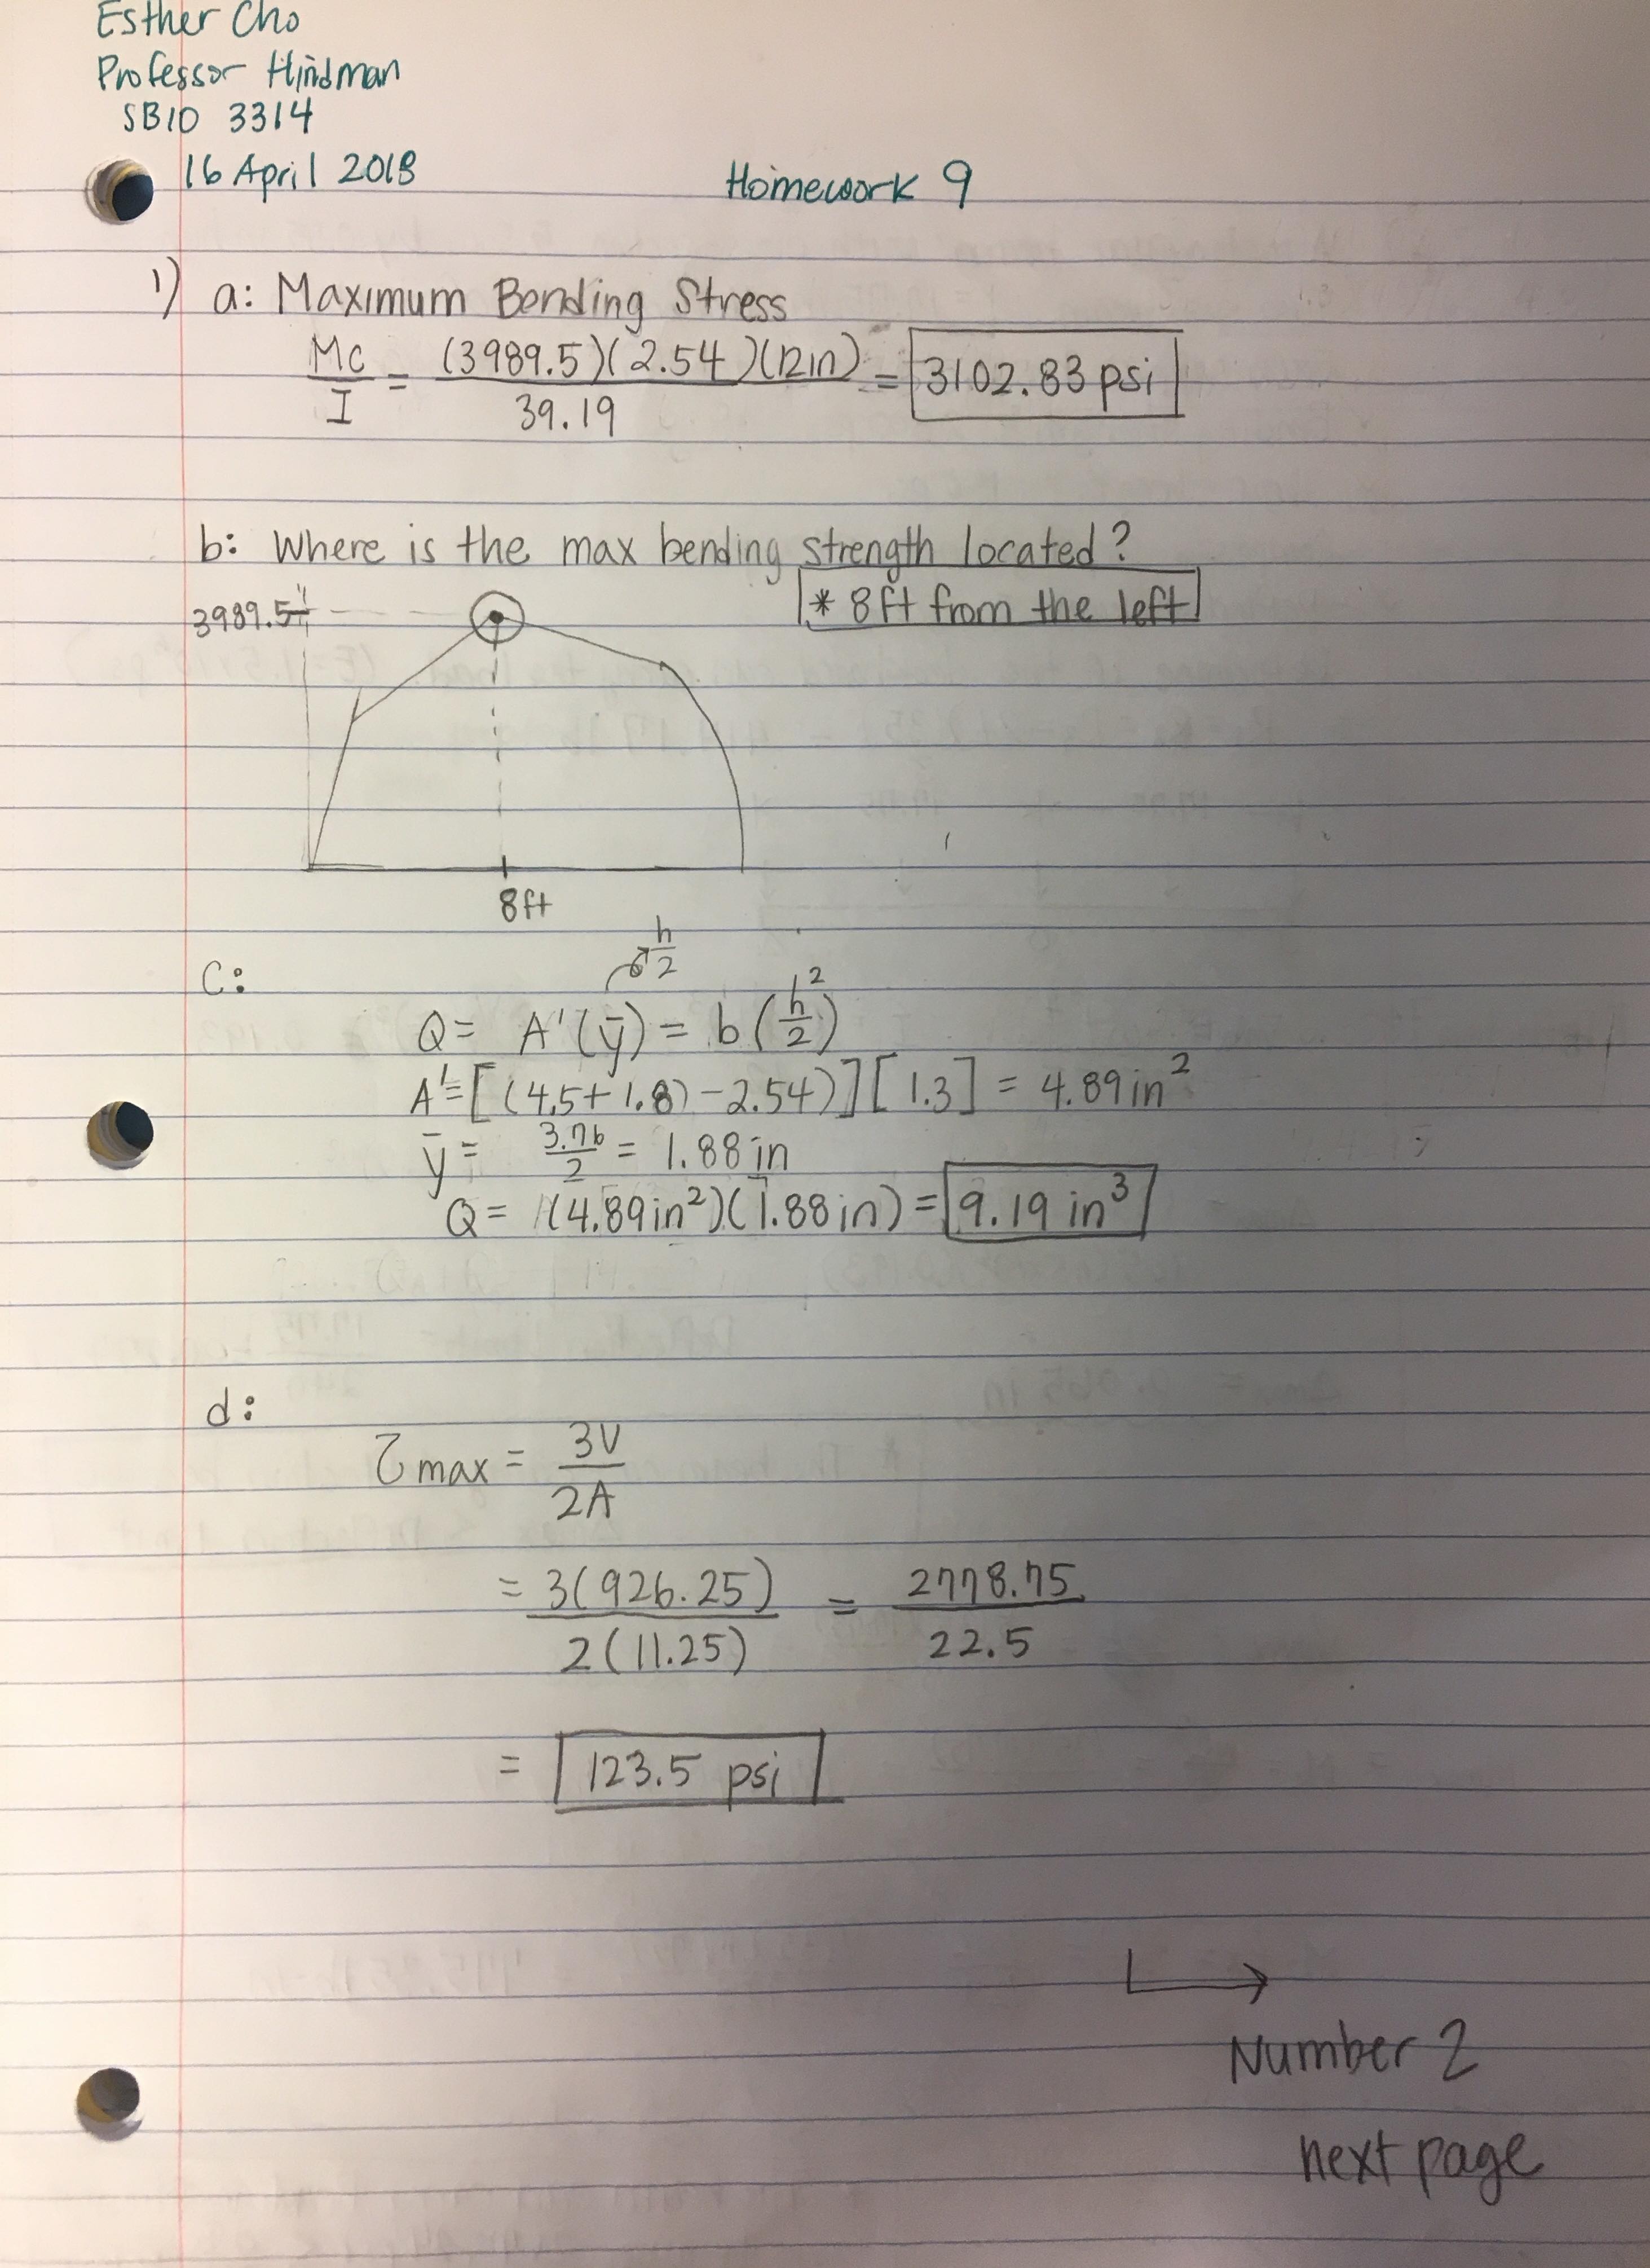 Esther Cho
Professor Hindman
SBIO 3314
16 April 2018
Homework 9
1) a: Maximum Bending Stress
Mc/I = (3989.5)(2.54)(12in)/39.19 = 3102.83 psi
b: Where is the max bending strength located?
* 8ft from the left
3989.5
8ft
h/2
c:
Q = A'(ȳ) = b(h/2)²
A' = [(4.5+1.8)-2.54)][1.3] = 4.89in²
ȳ = 3.76/2 = 1.88in
Q = (4.89in²)(1.88in) = 9.19 in³
d:
τmax = 3V/2A
= 3(926.25)/2(11.25) = 2778.75/22.5
= 123.5 psi
Number 2
next page